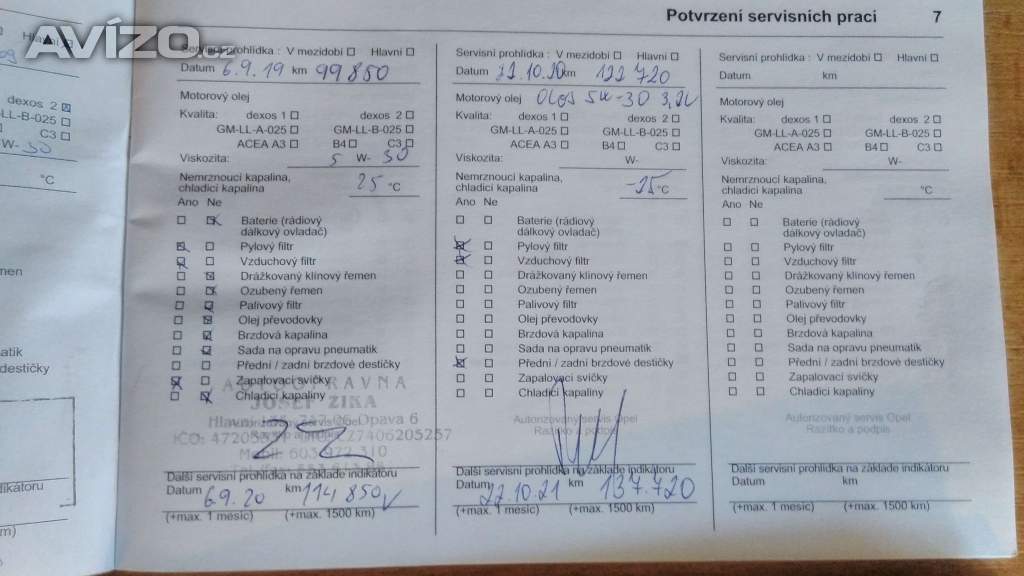 Potvrzení servisních prací 7
AVÍZO.cz
dexos 2
LL-B-025
C3
W- 30
°C
Servisní prohlídka : V mezidobí Hlavní
Datum 6.9.19 km 99 850
Motorový olej
Kvalita: dexos 1 dexos 2
GM-LL-A-025 GM-LL-B-025
ACEA A3 B4 C3
Viskozita: 5 W- 30
Nemrznoucí kapalina,
chladicí kapalina 25 °C
Ano Ne
Baterie (rádiový
dálkový ovladač)
Pylový filtr
Vzduchový filtr
Drážkovaný klínový řemen
Ozubený řemen
Palivový filtr
Olej převodovky
Brzdová kapalina
Sada na opravu pneumatik
Přední / zadní brzdové destičky
Zapalovací svíčky
Chladicí kapaliny
JOSEF ZIKA
Opava 6
Další servisní prohlídka na základě indikátoru
Datum 6.9.20 km 114 850
(+max. 1 měsíc) (+max. 1500 km)
Servisní prohlídka : V mezidobí Hlavní
Datum 22.10.20 km 122 720
Motorový olej 5W-30
Kvalita: dexos 1 dexos 2
GM-LL-A-025 GM-LL-B-025
ACEA A3 B4 C3
Viskozita: W-
Nemrznoucí kapalina,
chladicí kapalina -25 °C
Ano Ne
Baterie (rádiový
dálkový ovladač)
Pylový filtr
Vzduchový filtr
Drážkovaný klínový řemen
Ozubený řemen
Palivový filtr
Olej převodovky
Brzdová kapalina
Sada na opravu pneumatik
Přední / zadní brzdové destičky
Zapalovací svíčky
Chladicí kapaliny
Autorizovaný servis Opel
Razítko a podpis
Další servisní prohlídka na základě indikátoru
Datum 22.10.21 km 137.720
(+max. 1 měsíc) (+max. 1500 km)
Servisní prohlídka : V mezidobí Hlavní
Datum km
Motorový olej
Kvalita: dexos 1 dexos 2
GM-LL-A-025 GM-LL-B-025
ACEA A3 B4 C3
Viskozita: W-
Nemrznoucí kapalina,
chladicí kapalina °C
Ano Ne
Baterie (rádiový
dálkový ovladač)
Pylový filtr
Vzduchový filtr
Drážkovaný klínový řemen
Ozubený řemen
Palivový filtr
Olej převodovky
Brzdová kapalina
Sada na opravu pneumatik
Přední / zadní brzdové destičky
Zapalovací svíčky
Chladicí kapaliny
Autorizovaný servis Opel
Razítko a podpis
Další servisní prohlídka na základě indikátoru
Datum km
(+max. 1 měsíc) (+max. 1500 km)